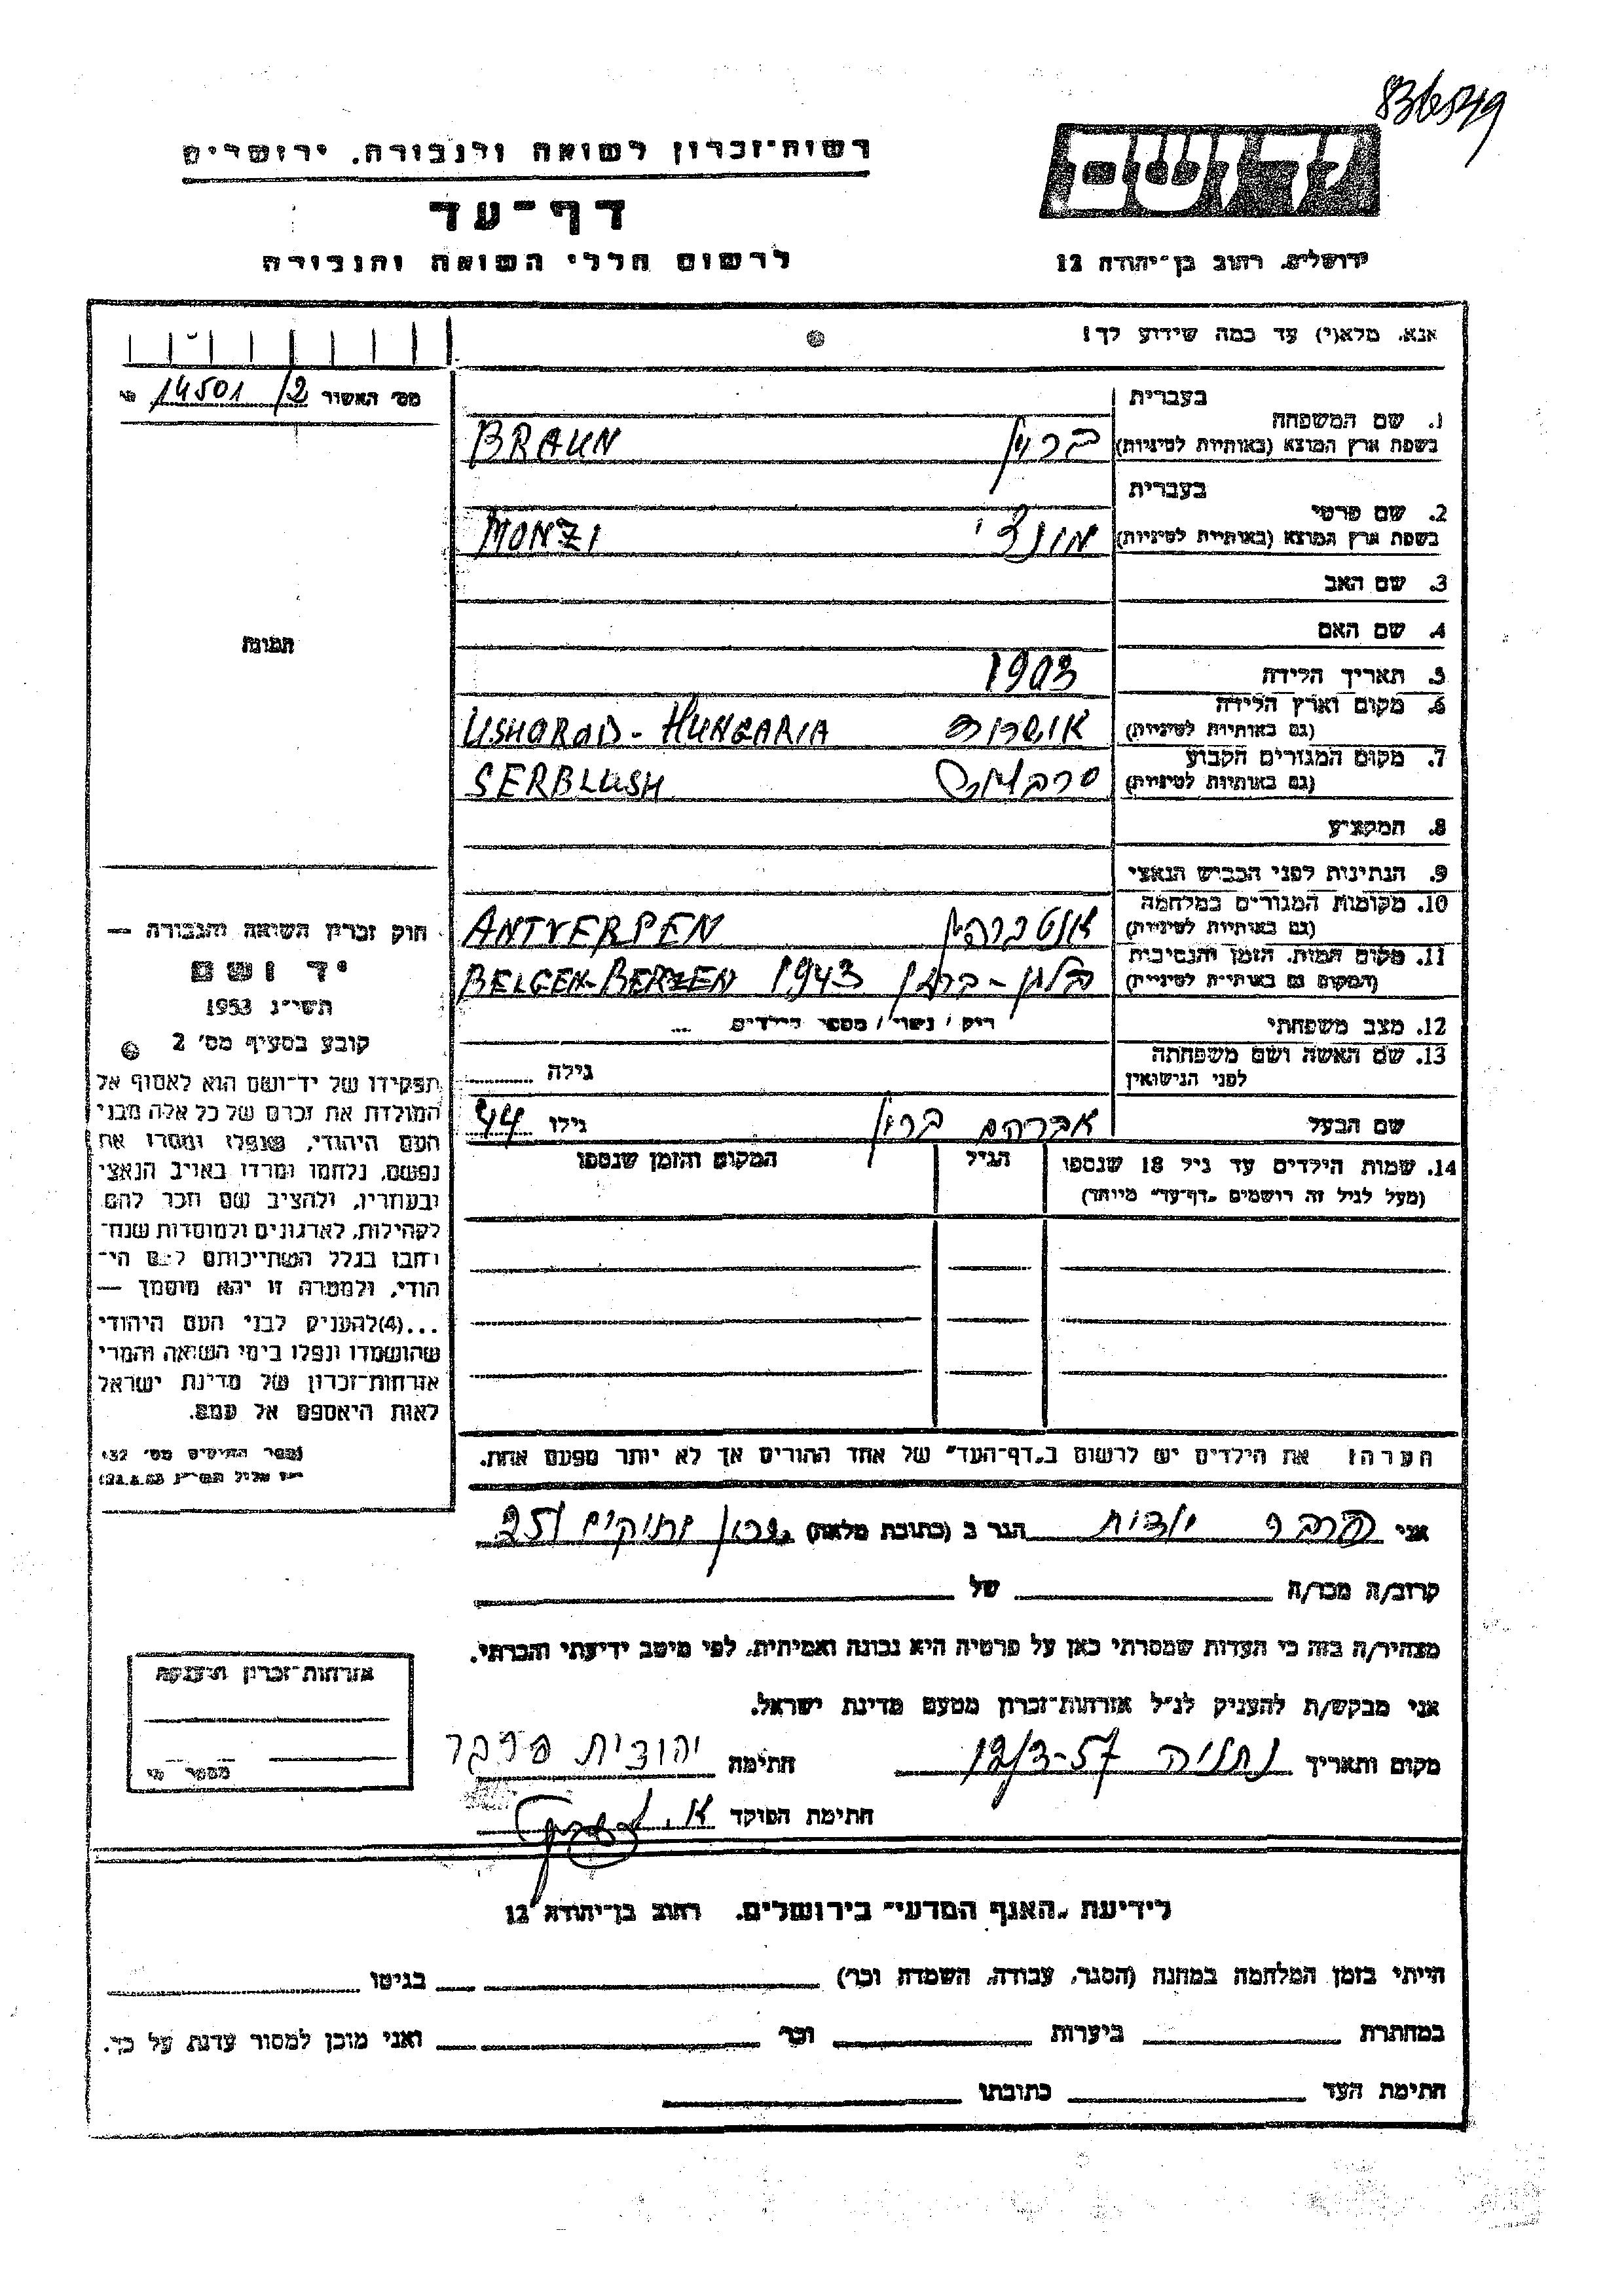 836549
ידושם
רשות־זכרון לשואה ולגבורה, ירושלים
דף־עד
ירושלים, רחוב בן־יהודה 12
לרשום חללי השואה והגבורה
אנא, מלא(י) עד כמה שידוע לך!
מס׳ האשור 14501/2
בעברית
1. שם המשפחה
בשפת ארץ המוצא (באותיות לטיניות)
ברוין BRAUN
בעברית
2. שם פרטי
בשפת ארץ המוצא (באותיות לטיניות)
מונצי MONZI
3. שם האב
4. שם האם
תמונה
5. תאריך הלידה 1903
6. מקום וארץ הלידה
(גם באותיות לטיניות)
USHOROD - HUNGARIA
7. מקום המגורים הקבוע
(גם באותיות לטיניות)
SERBLUSH
8. המקצוע
9. הנתינות לפני הכבוש הנאצי
10. מקומות המגורים במלחמה
(גם באותיות לטיניות)
אנטברפן ANTVERPEN
11. מקום המות, הזמן והנסיבות
(המקום גם באותיות לטיניות)
בלגן-ברזן BELGEN-BERZEN 1943
12. מצב משפחתי
רוק / נשוי / מספר הילדים ...
13. שם האשה ושם משפחתה
לפני הנישואין
גילה
שם הבעל אברהם ברוין גילו 44
14. שמות הילדים עד גיל 18 שנספו
(מעל לגיל זה רושמים „דף־עד״ מיוחד)
הגיל
המקום והזמן שנספו
הערה: את הילדים יש לרשום ב„דף־העד״ של אחד ההורים אך לא יותר מפעם אחת.
חוק זכרון השואה והגבורה —
יד ושם
תשי״ג 1953
קובע בסעיף מס׳ 2
תפקידו של יד־ושם הוא לאסוף אל
המולדת את זכרם של כל אלה מבני
העם היהודי, שנפלו ומסרו את
נפשם, נלחמו ומרדו באויב הנאצי
ובעוזריו, ולהציב שם וזכר להם
לקהילות, לארגונים ולמוסדות שנח־
רבו בגלל השתייכותם לעם הי־
הודי, ולמטרה זו יהא מוסמך —
...(4) להעניק לבני העם היהודי
שהושמדו ונפלו בימי השואה והמרי
אזרחות־זכרון של מדינת ישראל
לאות היאספם אל עמם.
(ספר החוקים מס׳ 132
אני פרבר יודית הגר ב (כתובת מלאה) ותיקים 25
קרוב/ה מכר/ה של
מצהיר/ה בזה כי העדות שמסרתי כאן על פרטיה היא נכונה ואמיתית, לפי מיטב ידיעתי והכרתי.
אני מבקש/ת להעניק לנ״ל אזרחות־זכרון מטעם מדינת ישראל.
מקום ותאריך נתניה 12/3-57 חתימה יהודית פרבר
חתימת הפוקד
אזרחות־זכרון הוענקה
מספר
לידיעת „האגף המדעי״ בירושלים, רחוב בן־יהודה 12
הייתי בזמן המלחמה במחנה (הסגר, עבודה, השמדה וכו׳) בגיטו
במחתרת ביערות וכו׳ ואני מוכן למסור עדות על כך.
חתימת העד כתובתו